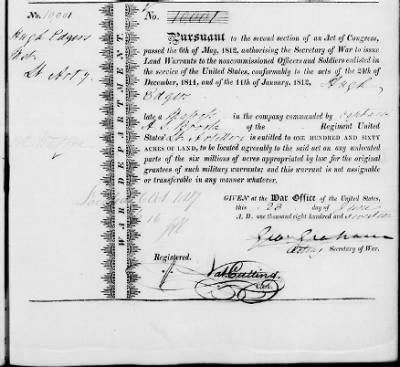 No. 10001
Hugh Edgers
Lt. Arty.
WAR DEPARTMENT.
No. 10001
Pursuant to the second section of an Act of Congress,
passed the 6th of May, 1812, authorising the Secretary of War to issue
Land Warrants to the noncommissioned Officers and Soldiers enlisted
in the service of the United States, conformably to the acts of the 24th of
December, 1811, and of the 11th of January, 1812, Hugh
Edgers
late a in the company commanded by Captain
A. S. Brooks of the Regiment United
States' Lt. Artillery is entitled to ONE HUNDRED AND SIXTY
ACRES OF LAND, to be located agreeably to the said act on any unlocated
parts of the six millions of acres appropriated by law for the original
grantees of such military warrants; and this warrant is not assignable
or transferable in any manner whatever.
GIVEN at the War Office of the United States,
this 23 day of June
A. D. one thousand eight hundred and seventeen
Geo: Graham
Acting Secretary of War.
Registered.
Nat. Cutting
Clk.